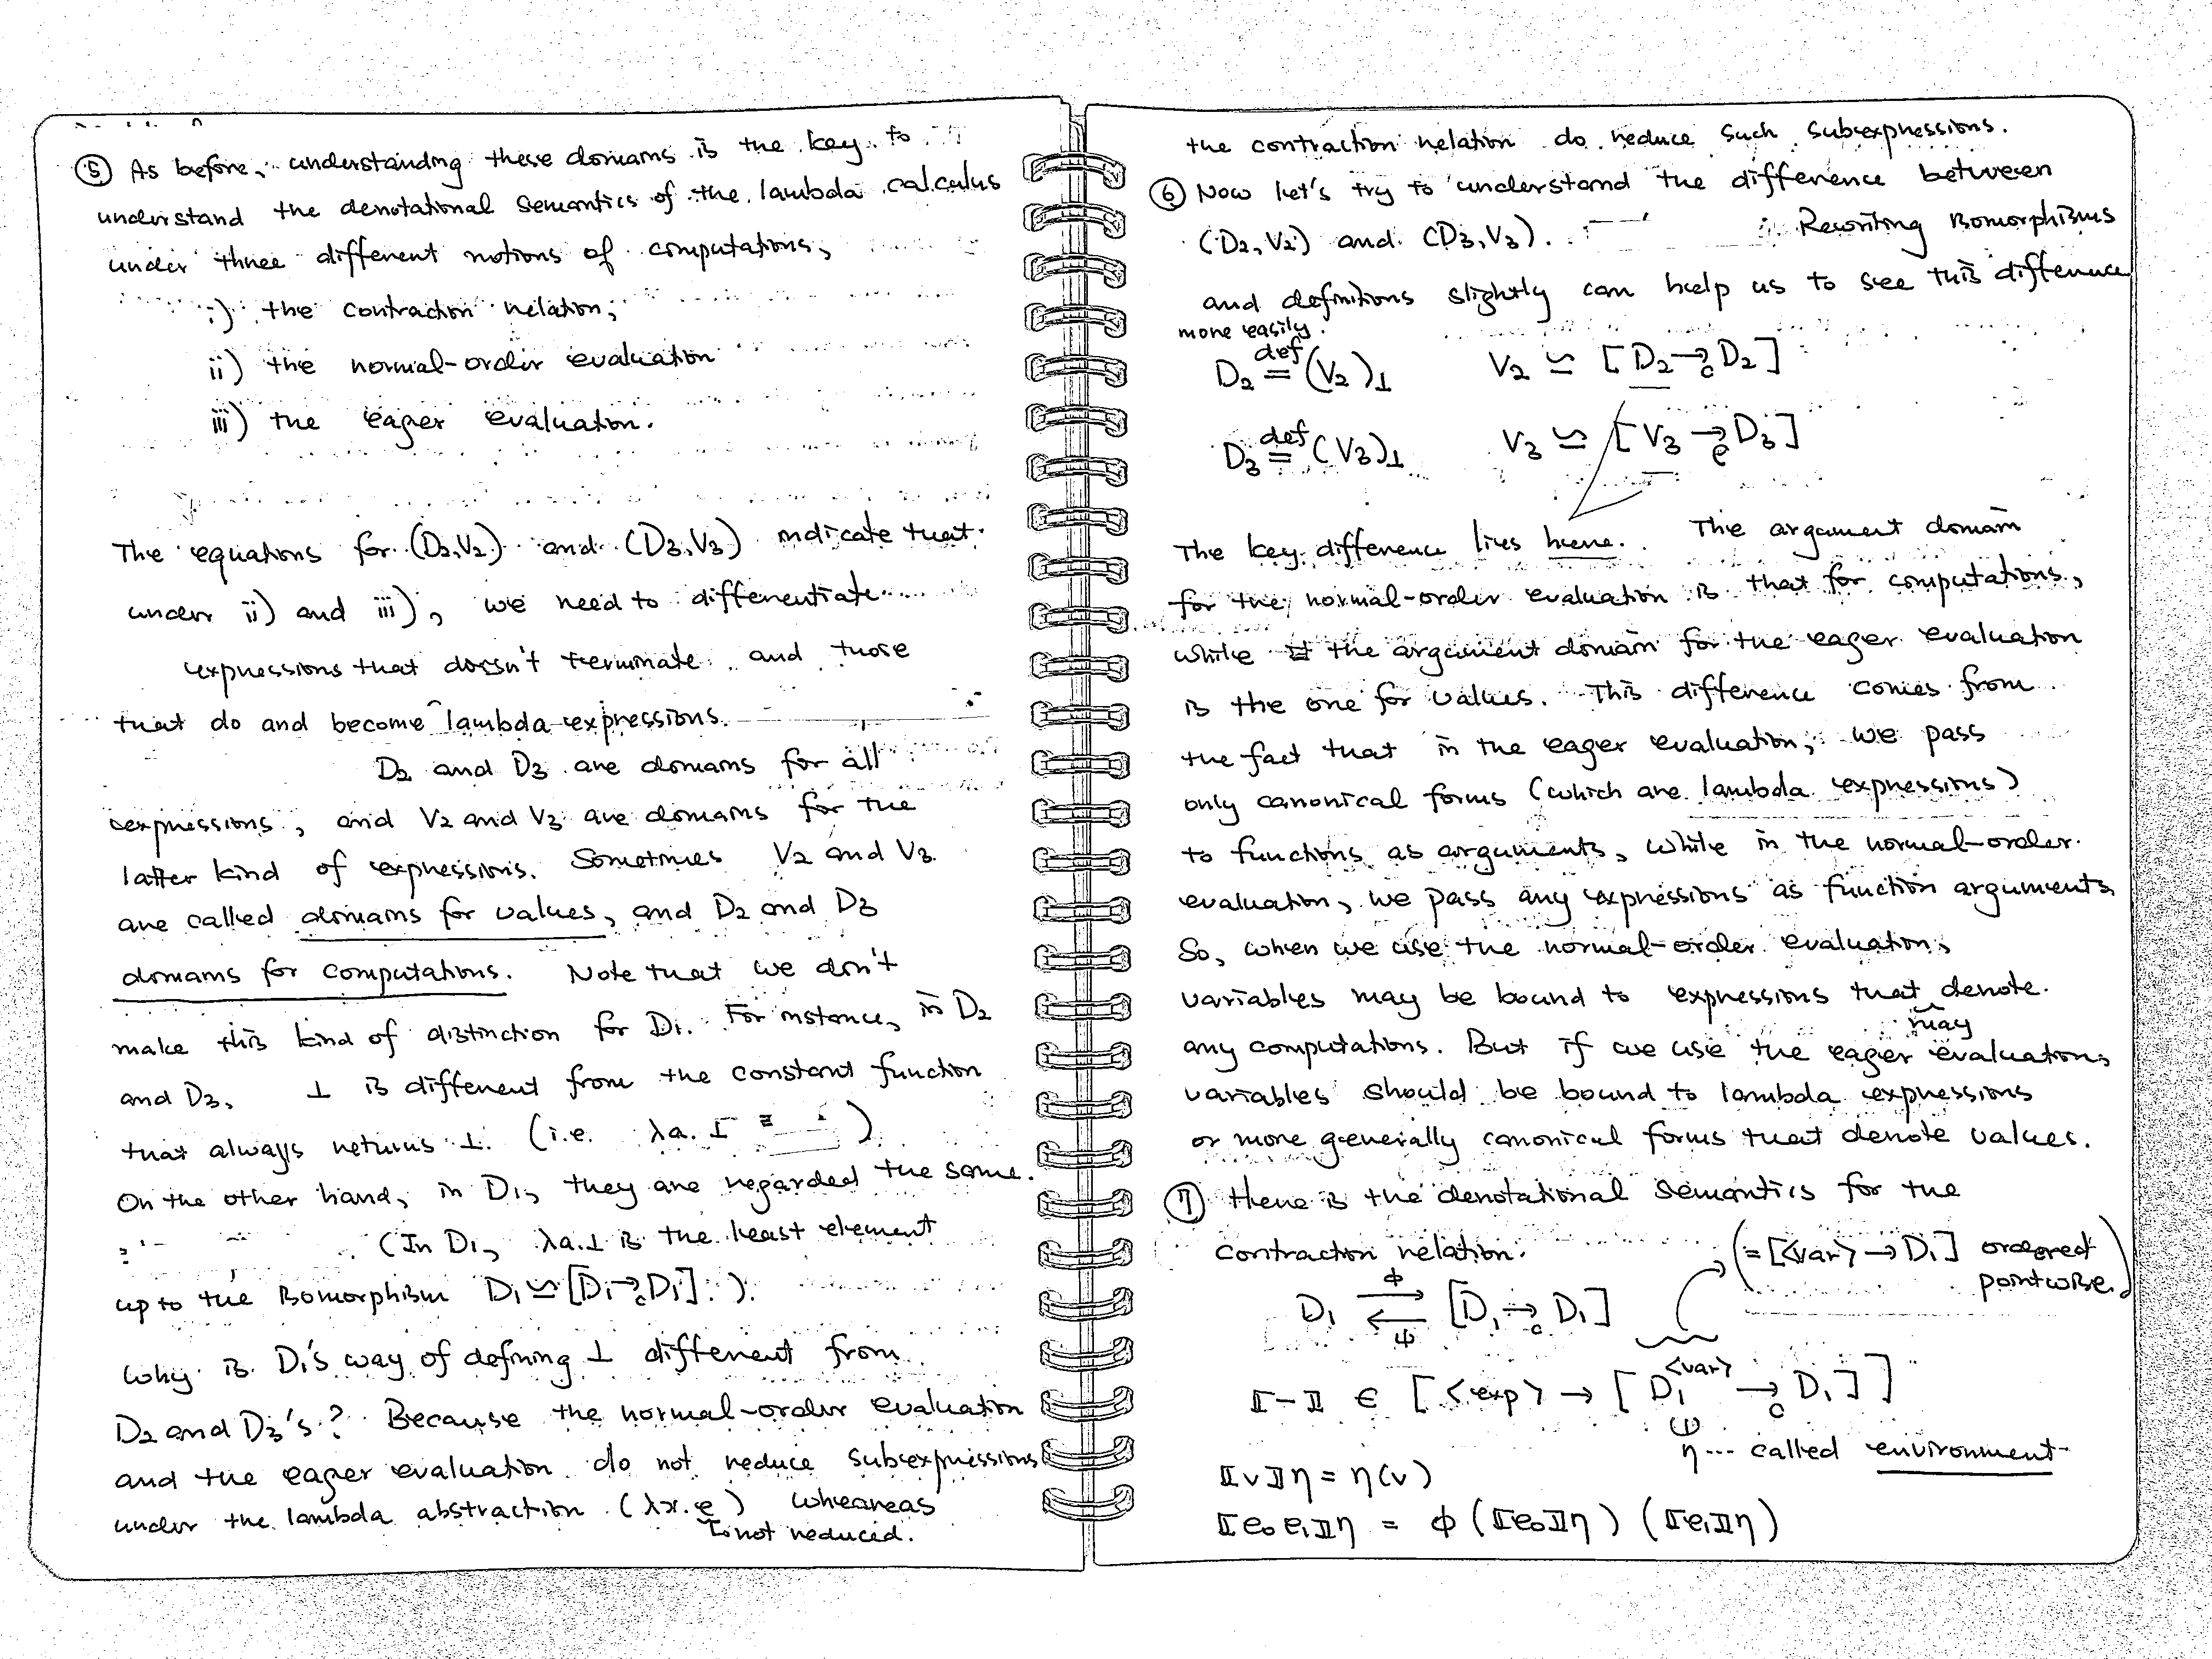 ⑤ As before, understanding these domains is the key to
understand the denotational semantics of the lambda calculus
under three different notions of computations,
i) the contraction relation,
ii) the normal-order evaluation
iii) the eager evaluation.
The equations for (D₂,V₂) and (D₃,V₃) indicate that
under ii) and iii), we need to differentiate
expressions that doesn't terminate and those
that do and become lambda expressions.
D₂ and D₃ are domains for all
expressions, and V₂ and V₃ are domains for the
latter kind of expressions. Sometimes V₂ and V₃
are called domains for values, and D₂ and D₃
domains for computations. Note that we don't
make this kind of distinction for D₁. For instance, in D₂
and D₃, ⊥ is different from the constant function
that always returns ⊥. (i.e. λa.⊥)
On the other hand, in D₁, they are regarded the same.
(In D₁, λa.⊥ is the least element
up to the isomorphism D₁ ≃ [D₁ →c D₁].).
Why is D₁'s way of defining ⊥ different from
D₂ and D₃'s? Because the normal-order evaluation
and the eager evaluation do not reduce subexpressions
under the lambda abstraction (λx.e) wheareas
is not reduced.
the contraction relation do reduce such subexpressions.
⑥ Now let's try to understand the difference between
(D₂,V₂) and (D₃,V₃). Rewriting isomorphisms
and definitions slightly can help us to see this difference
more easily.
D₂ def= (V₂)⊥ V₂ ≃ [D₂ →c D₂]
D₃ def= (V₃)⊥ V₃ ≃ [V₃ →c D₃]
The key difference lies here. The argument domain
for the normal-order evaluation is that for computations,
while the argument domain for the eager evaluation
is the one for values. This difference comes from
the fact that in the eager evaluation, we pass
only canonical forms (which are lambda expressions)
to functions as arguments, while in the normal-order
evaluation, we pass any expressions as function arguments.
So, when we use the normal-order evaluation,
variables may be bound to expressions that denote
may
any computations. But if we use the eager evaluation,
variables should be bound to lambda expressions
or more generally canonical forms that denote values.
⑦ Here is the denotational semantics for the
contraction relation. (= [<var> → D₁] ordered
pointwise.)
D₁ ⇄ [D₁ →c D₁]
ϕ
ψ
⟦-⟧ ∈ [<exp> → [D₁^<var> →c D₁]]
η --- called environment
⟦v⟧η = η(v)
⟦e₀ e₁⟧η = ϕ(⟦e₀⟧η)(⟦e₁⟧η)